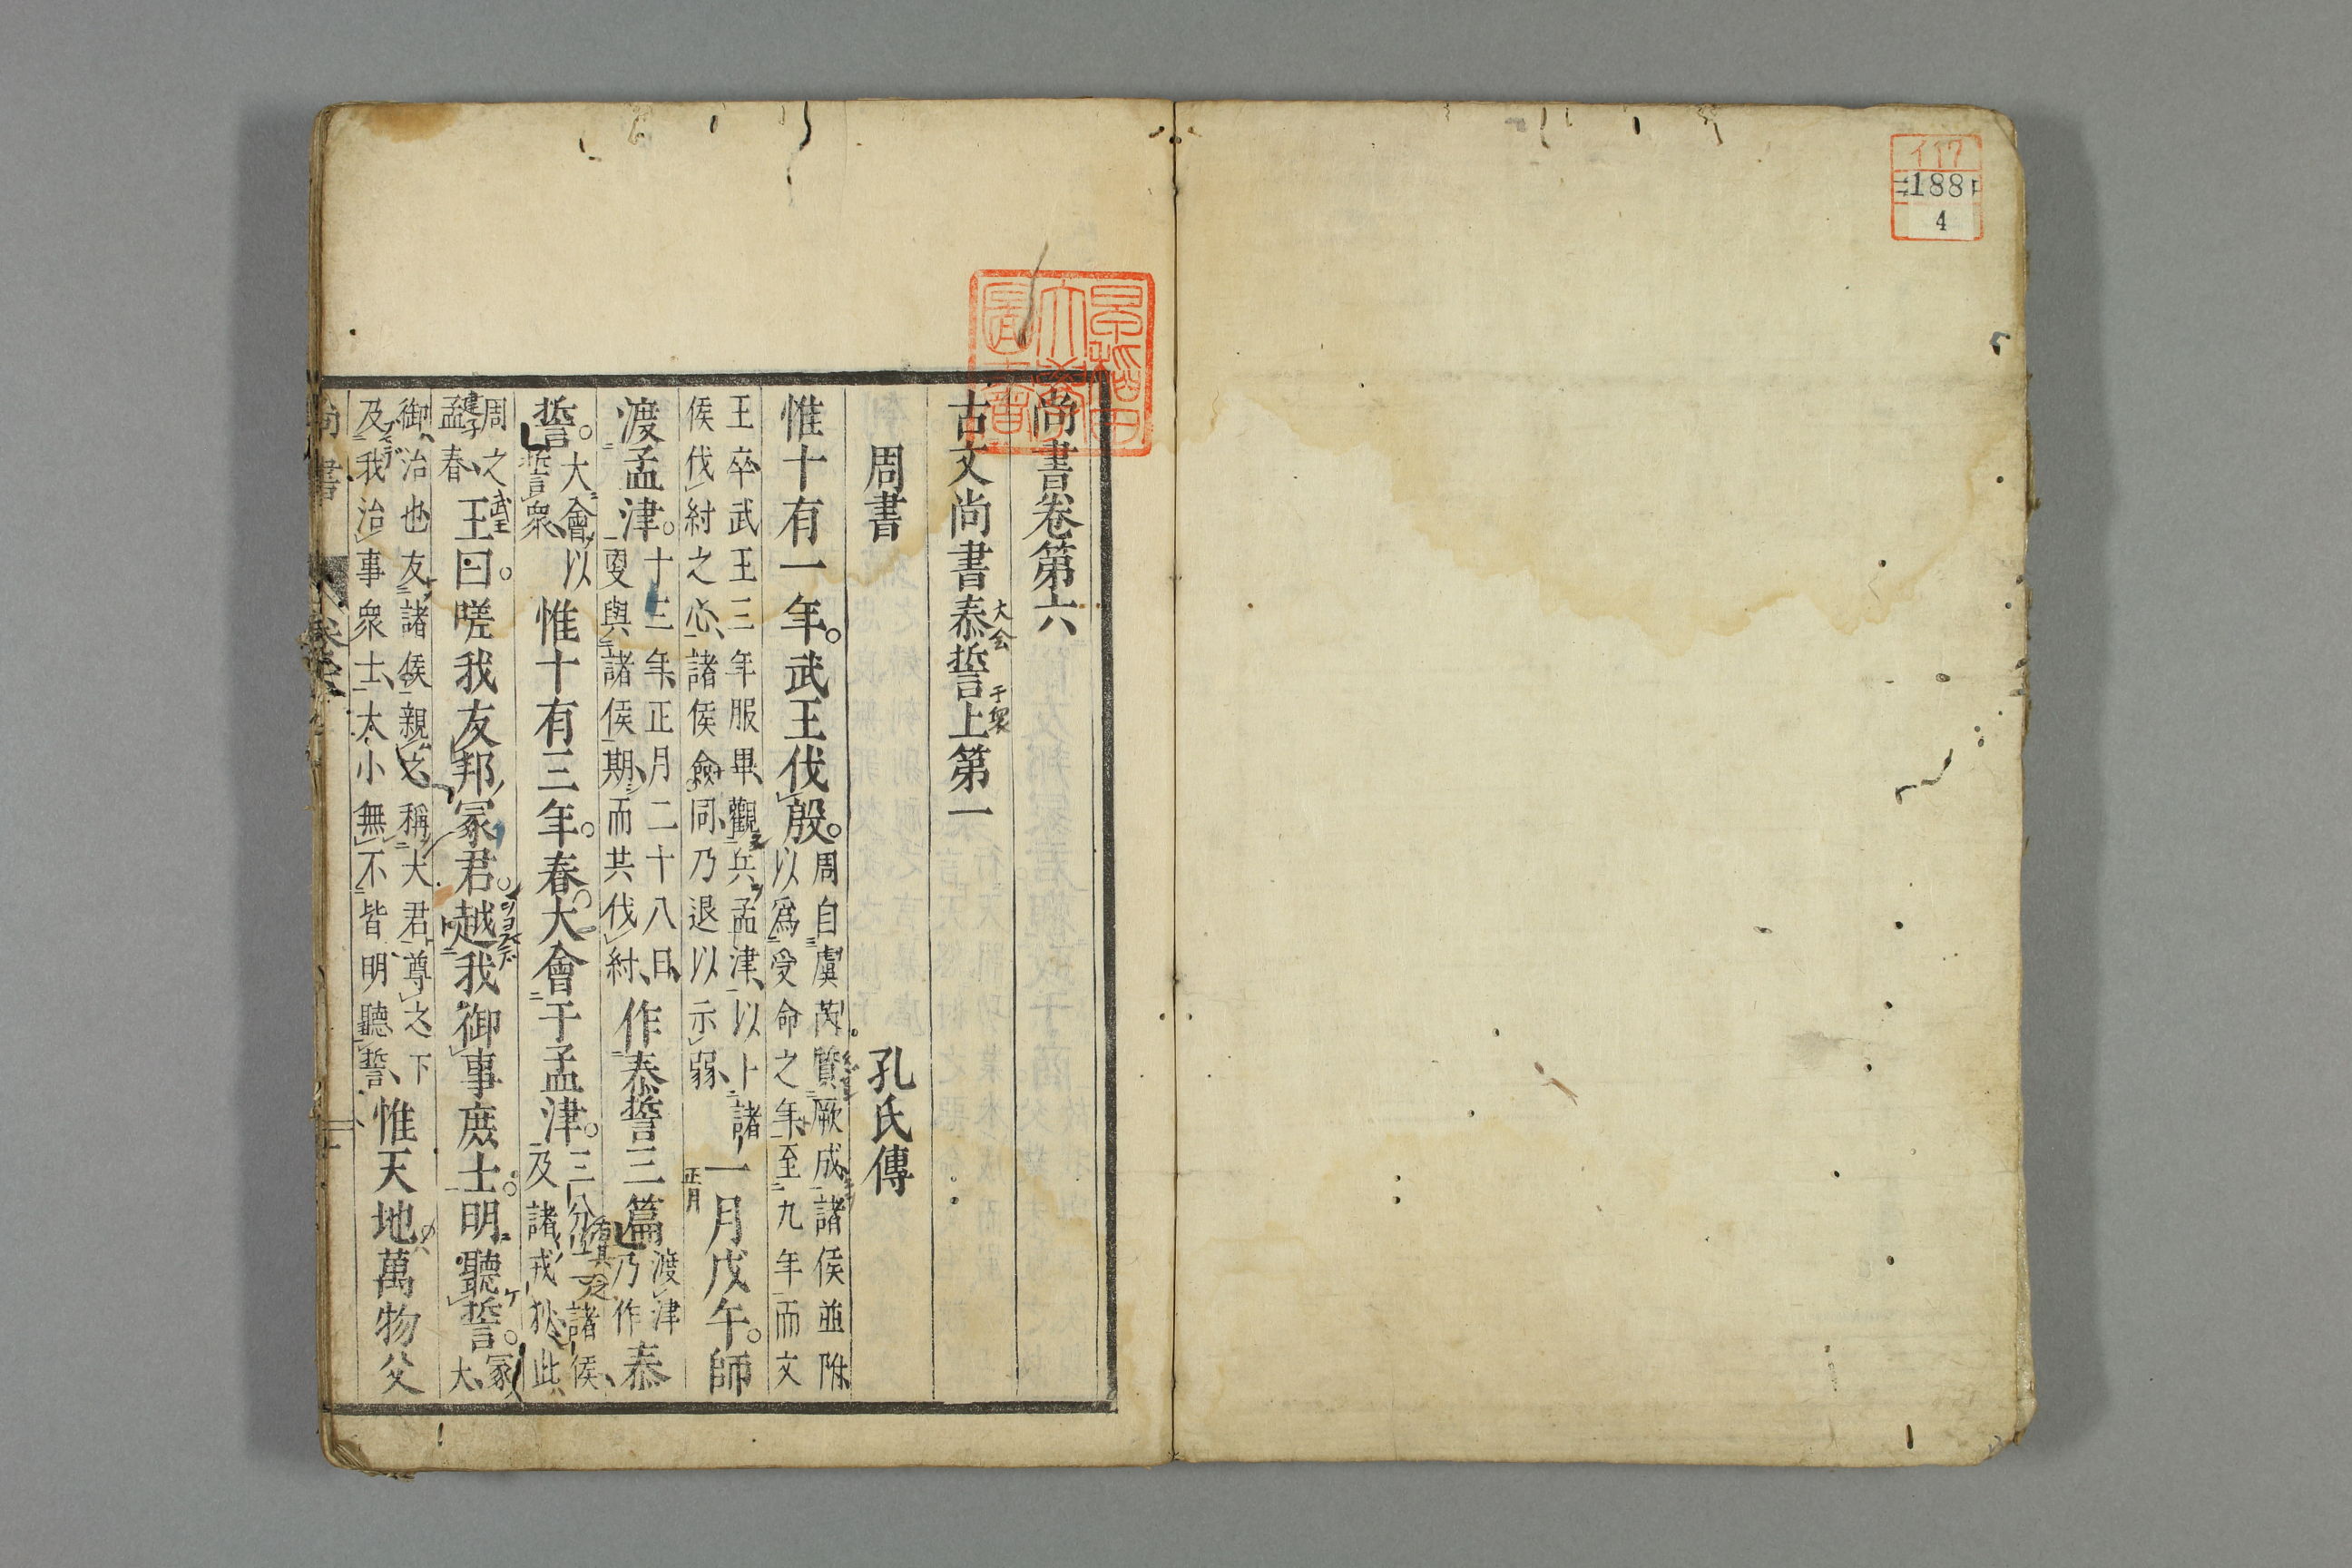 イ17
188
4
早稲田大學圖書
尚書卷第六
古文尚書泰誓上第一
大会
于衆
周書
孔氏傳
惟十有一年。武王伐殷。周自虞芮質厥成諸侯並附
以爲受命之年至九年而文
王卒武王三年服畢觀兵孟津以卜諸
侯伐紂之心諸侯僉同乃退以示弱
一月戊午。師
正月
渡孟津。十三年正月二十八日
更與諸侯期而共伐紂
作泰誓三篇渡津
乃作泰
誓。大會以
誓衆
惟十有三年。春。大會于孟津。三分二諸侯
及諸戎狄此
周之
孟春
建子
王曰。嗟我友邦冢君。越我御事庶士。明聽誓。冢
大
武王
御治也友諸侯親之稱大君尊之下
及我治事衆士大小無不皆明聽誓
惟天地萬物父
尚書